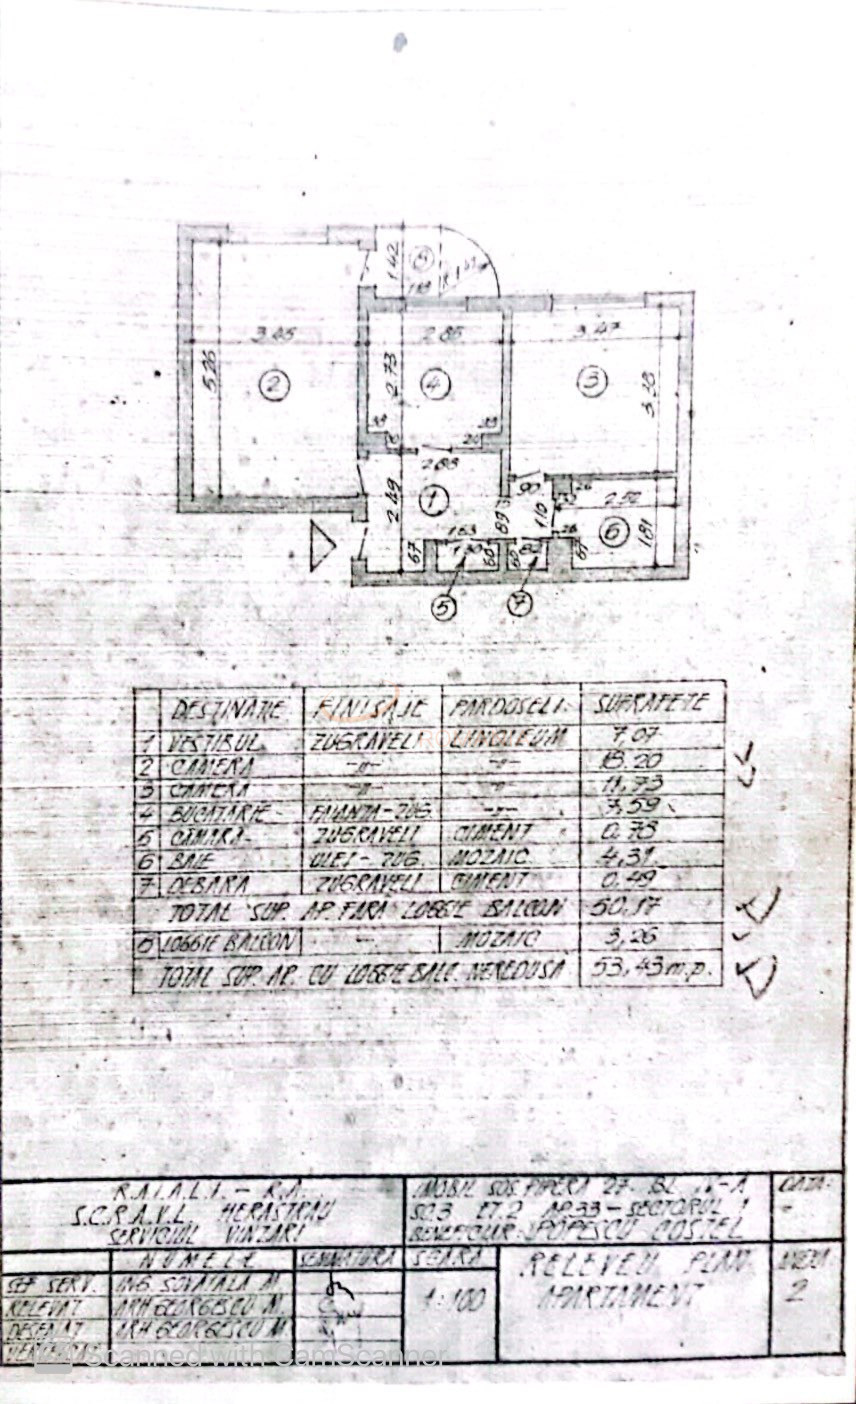 1.42
8
3.45
2.85
3.47
5.26
2
2.73
4
3
3.38
2.83
2.49
1
90
1.10
2.52
1.63
89
6
1.81
67
60
67
5
7
DESTINATIE FINISAJE PARDOSELI SUPRAFETE
1 VESTIBUL ZUGRAVELI LINOLEUM 7,07
2 CAMERA -"- -"- 18.20
3 CAMERA -"- -"- 11,73
4 BUCATARIE FAIANTA-ZUG. -"- 7,59
5 CAMARA ZUGRAVELI CIMENT 0,78
6 BAIE ULEI-ZUG. MOZAIC 4,31
7 DEBARA ZUGRAVELI CIMENT 0,49
TOTAL SUP. AP. FARA LOGGIE BALCON 50,17
8 LOGGIE BALCON - MOZAIC 3,26
TOTAL SUP. AP. CU LOGGIE BALC. NEREDUSA 53,43 m.p.
R.A.I.A.L.I. - R.A.
S.C.R.A.V.L. HERASTRAU
SERVICIUL VINZARI
IMOBIL SOS. PIPERA 27. BL. IV-A
SC.3 ET.2 AP.33 - SECTORUL 1
BENEFICIAR: POPESCU COSTEL
DATA:
NUMELE SEMNATURA SCARA
SEF SERV. ING. SOVAIALA M.
RELEVAT ARH. GEORGESCU M.
DESENAT ARH. GEORGESCU M.
VERIFICAT
1:100
RELEVEU PLAN
APARTAMENT
ANEXA
2
Scanned with CamScanner